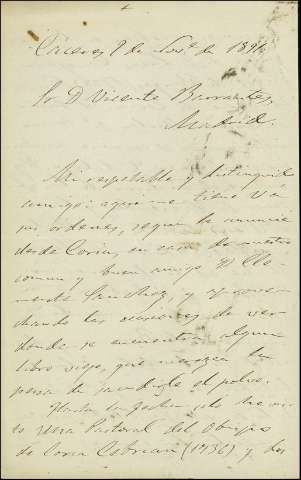 Cáceres 9 de Nov.e de 189
Sr. D Vicente Barrantes,
Madrid.
Mi respetable y distinguido
amigo: aqui me tiene Vd á
sus ordenes, segun le anuncié
desde Coria, en casa de nuestro
comun y buen amigo D. Cle-
mente Sanchez, y aprove-
chando las ocasiones de ver
donde se encuentra algun
libro viejo, que merezca la
pena de sacudirle el polvo.
Hasta la fecha, solo he vis-
to una Pastoral del Obispo
de Coria Cebrian (1736) y dos